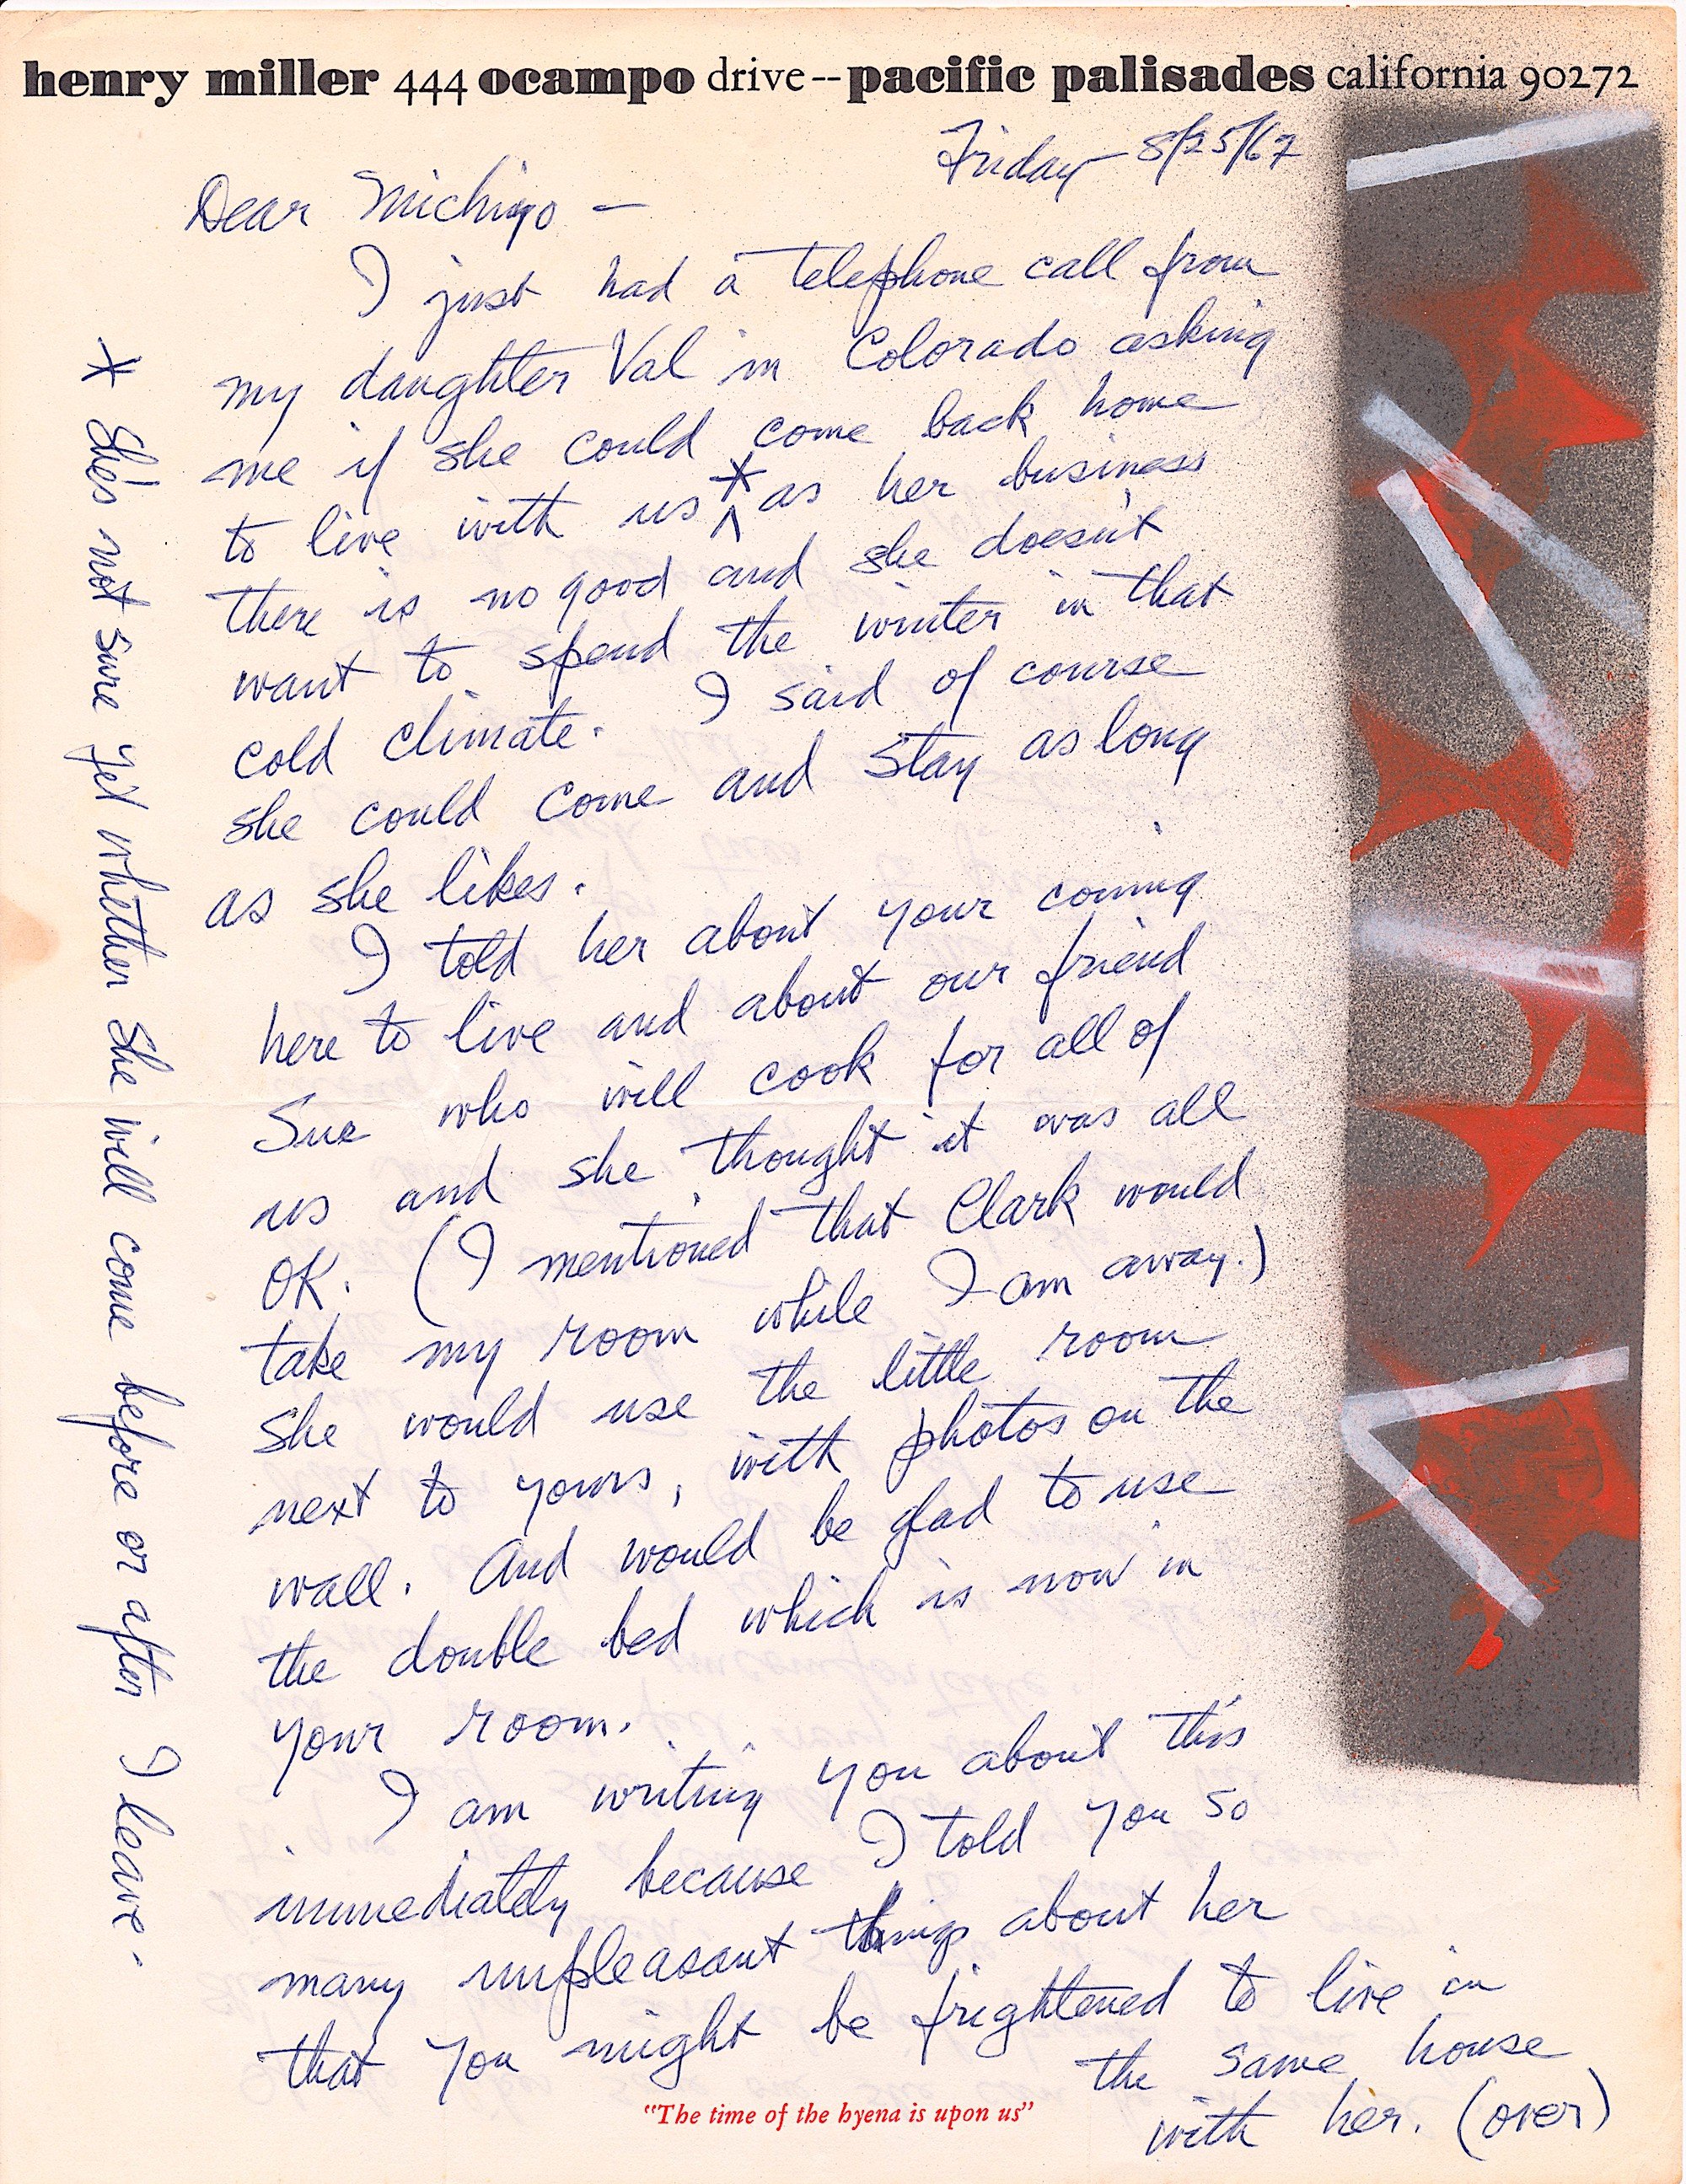 henry miller 444 ocampo drive--pacific palisades california 90272
Friday 8/25/67
Dear Michiyo —
I just had a telephone call from
my daughter Val in Colorado asking
me if she could come back home
to live with us * as her business
there is no good and she doesn't
want to spend the winter in that
cold climate. I said of course
she could come and stay as long
as she likes.
I told her about your coming
here to live and about our friend
Sue who will cook for all of
us and she thought it was all
OK. (I mentioned that Clark would
take my room while I am away.)
She would use the little room
next to yours, with photos on the
wall. And would be glad to use
the double bed which is now in
your room.
I am writing you about this
immediately because I told you so
many unpleasant things about her
that you might be frightened to live in
the same house
with her. (over)
* She's not sure yet whether she will come before or after I leave.
"The time of the hyena is upon us"